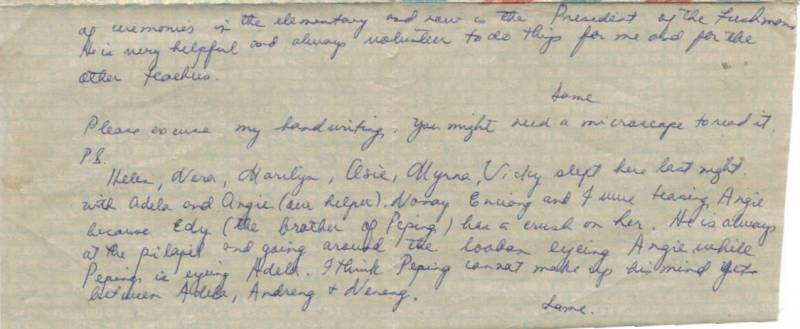 of ceremonies in the elementary and now is the President of the Freshmen
He is very helpful and always volunteer to do things for me and for the
other teachers.
Same
Please excuse my handwriting. You might need a microscope to read it.
PS.
Helen, Nera, Marilyn, Osie, Myrna, Vicky slept here last night.
with Adela and Angie (our helper). Nanay Enciong and I were teasing Angie
because Edy (the brother of Peping) has a crush on her. He is always
at the pilapil and going around the looban eyeing Angie while
Pepings is eyeing Adela. I think Peping cannot make up his mind yet
between Adela, Andreng & Neneng.
Same.